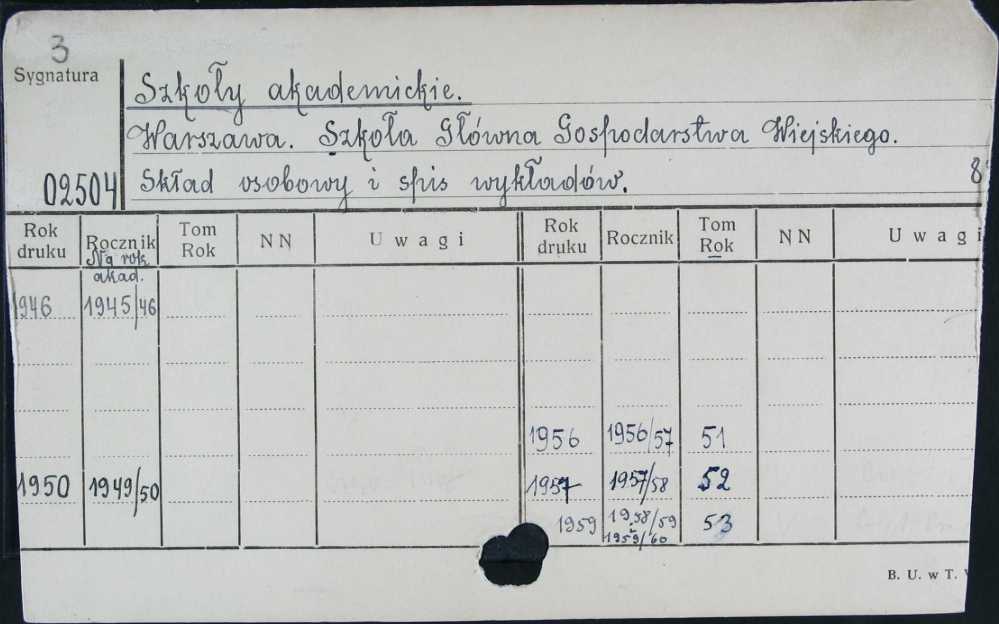 3
Sygnatura
Szkoły akademickie.
Warszawa. Szkoła Główna Gospodarstwa Wiejskiego.
02504 Skład osobowy i spis wykładów. 8
Rok druku Rocznik Tom Rok NN Uwagi Rok druku Rocznik Tom Rok NN Uwagi
Na rok akad.
1946 1945/46
1956 1956/57 51
1950 1949/50 1957 1957/58 52
1959 1958/59 53
1959/60
B. U. w T.